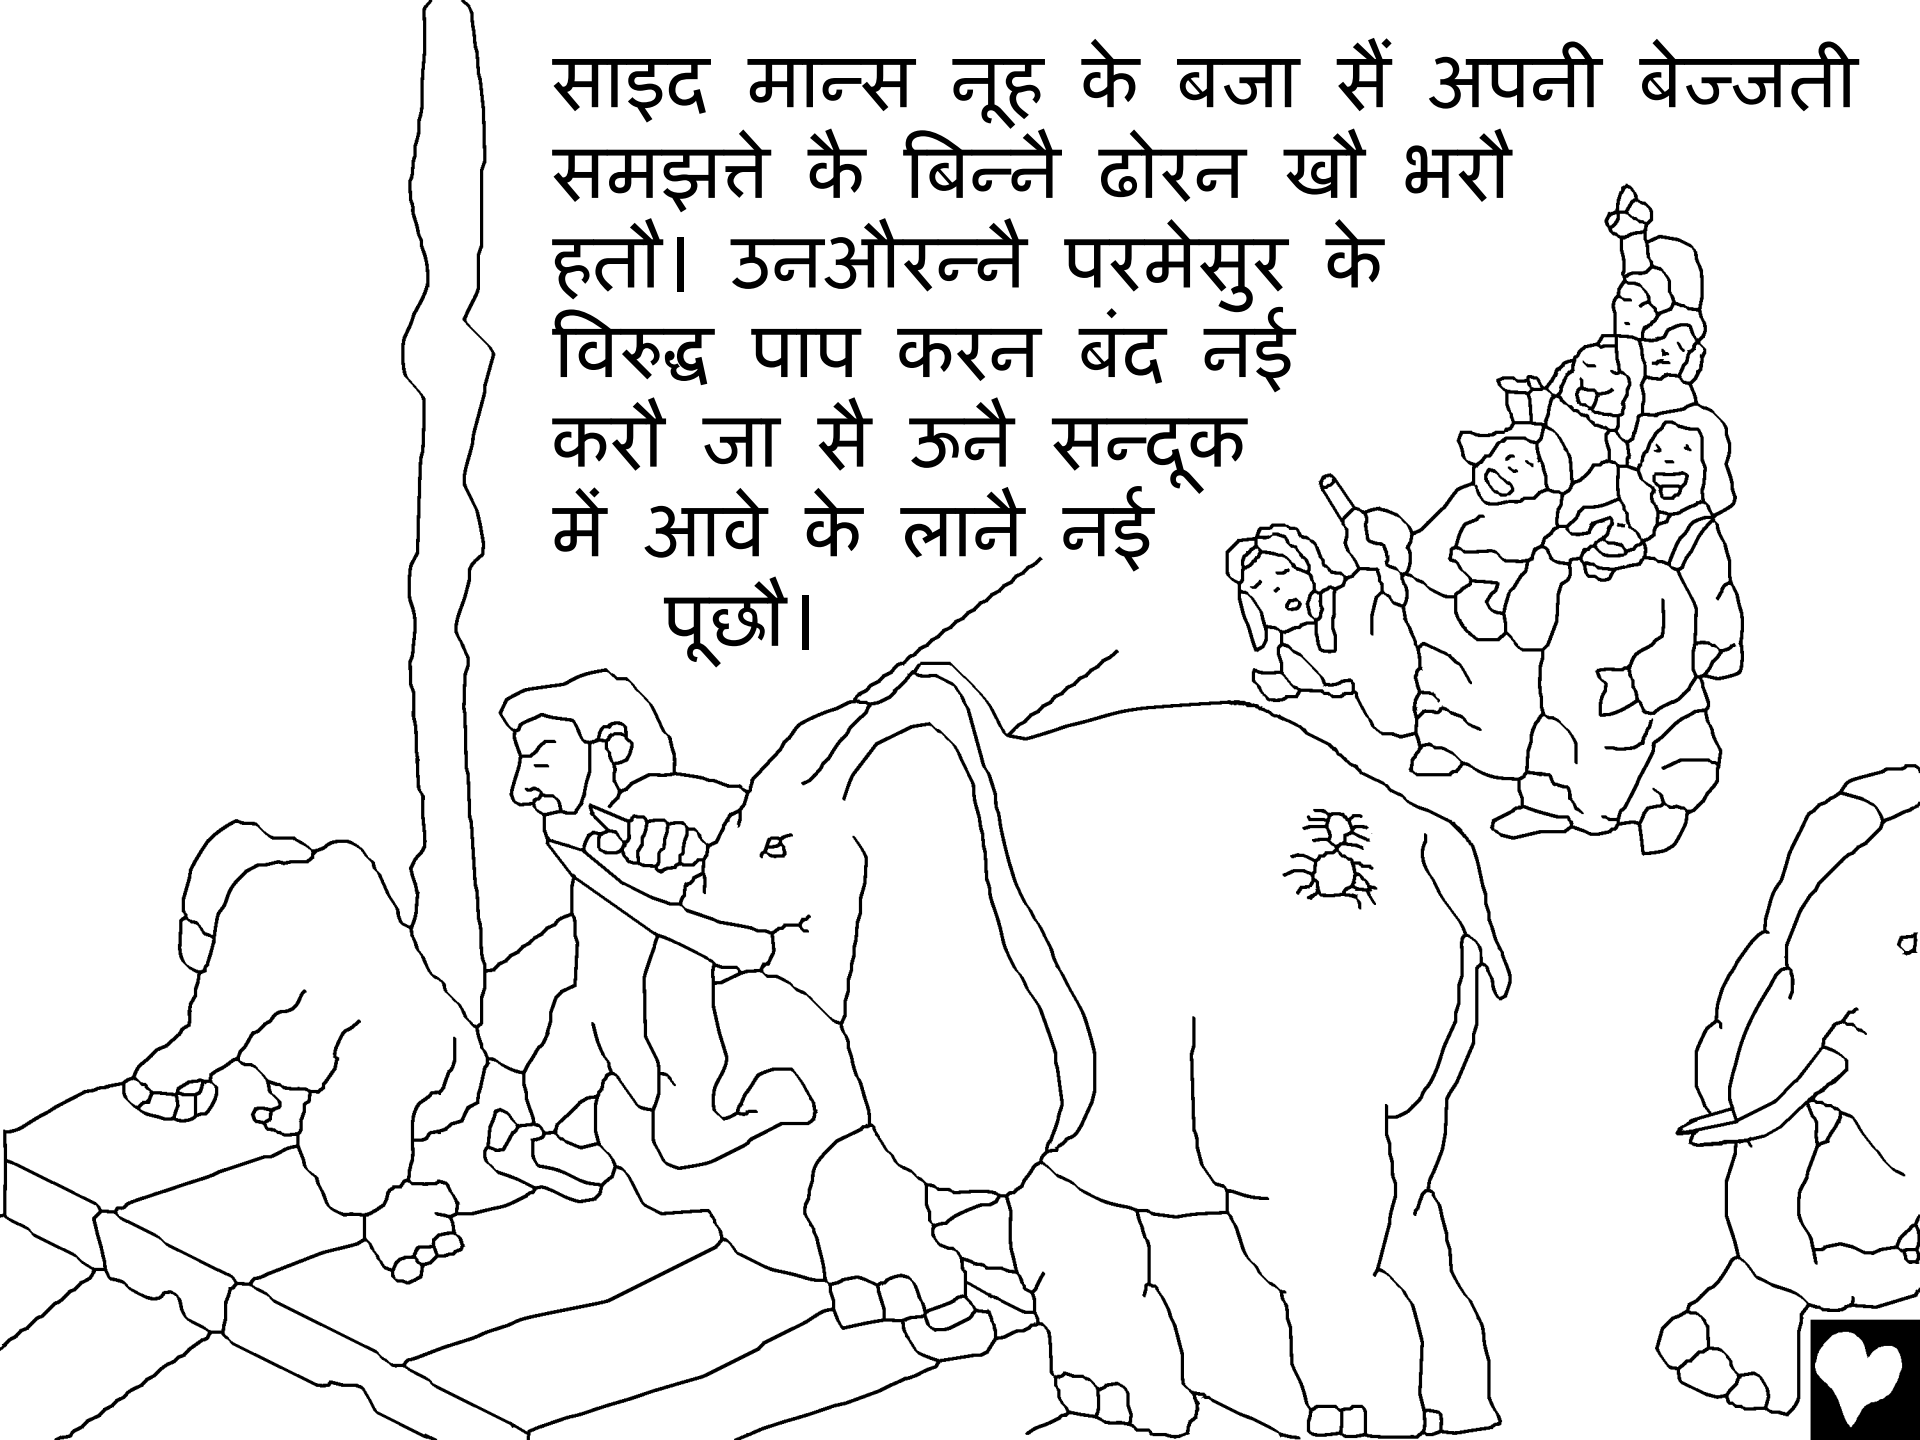 साइद मान्स नूह के बजा सैं अपनी बेज्जती
समझत्ते कै बिन्नै ढोरन खौ भरौ
हतौ। उनऔरन्नै परमेसुर के
विरुद्ध पाप करन बंद नई
करौ जा सै ऊनै सन्दूक
में आवे के लानै नई
पूछौ।